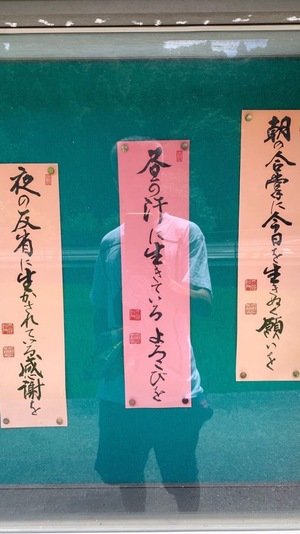 朝の合掌に今日を生きぬく願いを
昼の汗に生きているよろこびを
夜の反省に生かされている感謝を